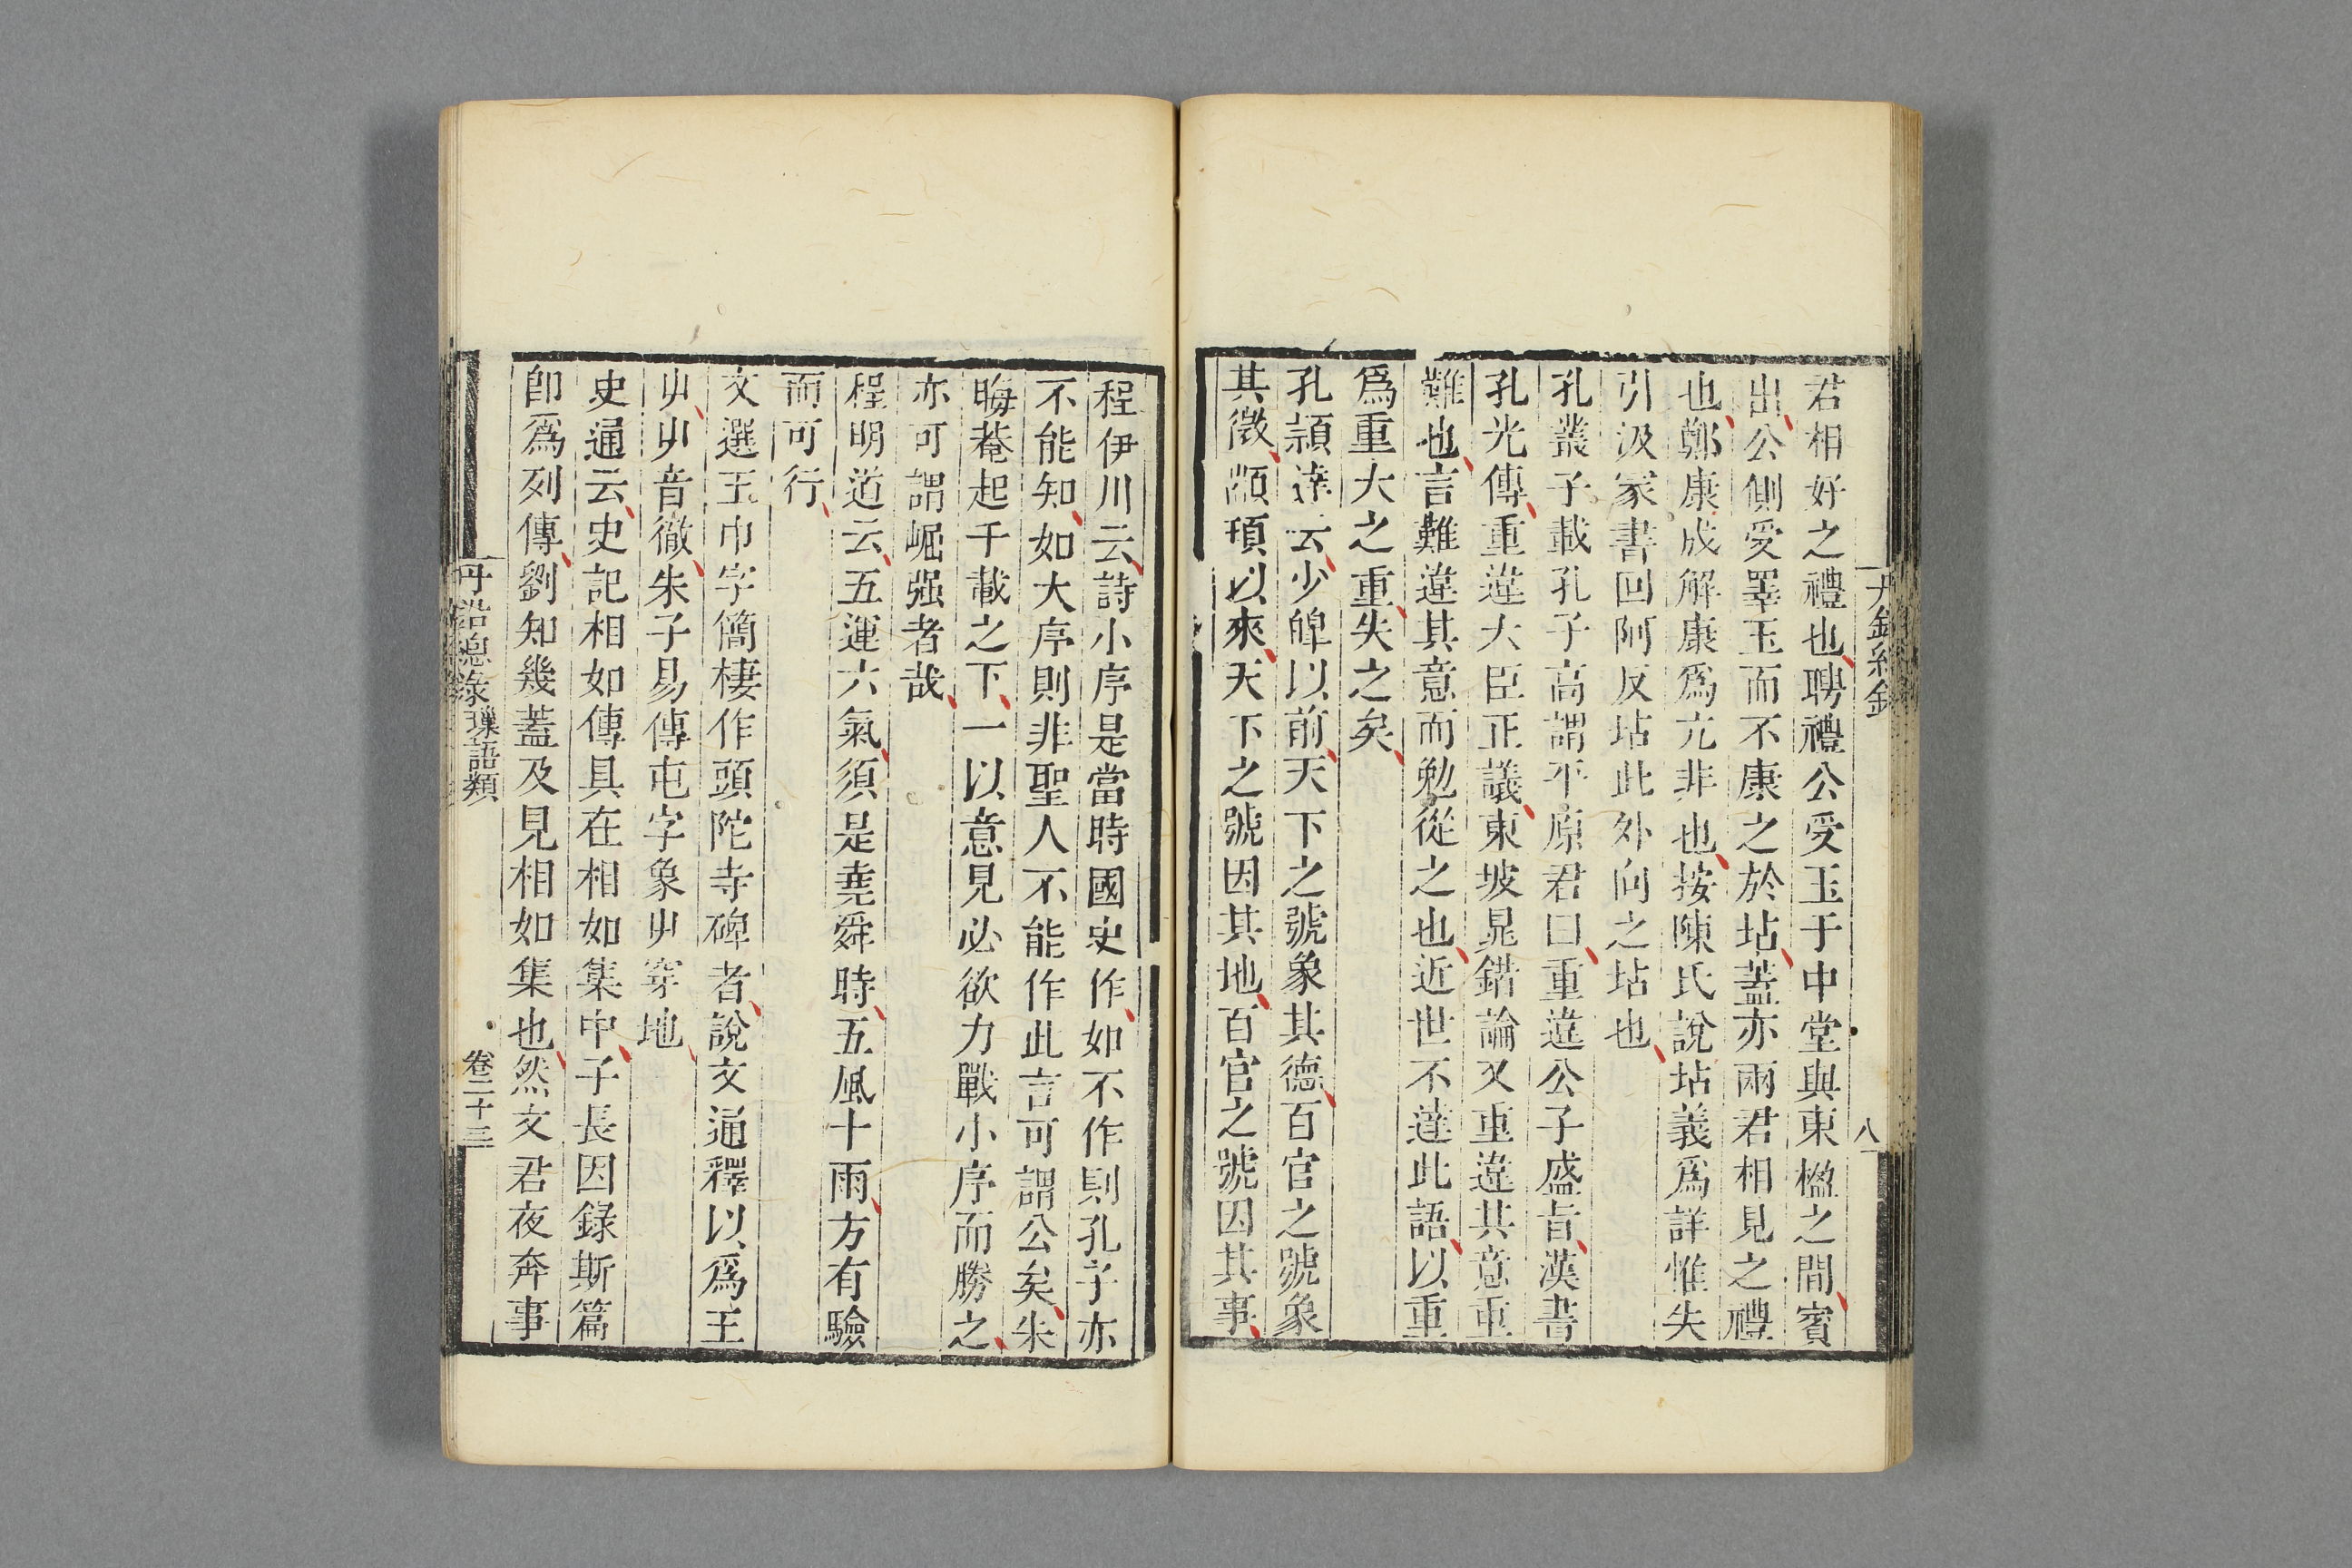 君相好之禮也聘禮公受玉于中堂與東楹之間賓
出公側受睪玉而不康之於坫蓋亦兩君相見之禮
也鄭康成解康爲亢非也按陳氏說坫義爲詳惟失
引汲冢書回阿反坫此外向之坫也
孔叢子載孔子高謂平原君曰重違公子盛旨漢書
孔光傳重違大臣正議東坡鼂錯論又重違其意重
難也言難違其意而勉從之也近世不達此語以重
爲重大之重失之矣
孔頴達云少皥以前天下之號象其德百官之號象
其徵顓頊以來天下之號因其地百官之號因其事
程伊川云詩小序是當時國史作如不作則孔子亦
不能知如大序則非聖人不能作此言可謂公矣朱
晦菴起千載之下一以意見必欲力戰小序而勝之
亦可謂崛强者哉
程明道云五運六氣須是堯舜時五風十雨方有驗
而可行
文選王巾字簡棲作頭陀寺碑者說文通釋以爲王
屮屮音徹朱子易傳屯字象屮穿地
史通云史記相如傳具在相如集中子長因錄斯篇
卽爲列傳劉知幾蓋及見相如集也然文君夜奔事
丹鉛總錄 璅語類 卷二十三
八